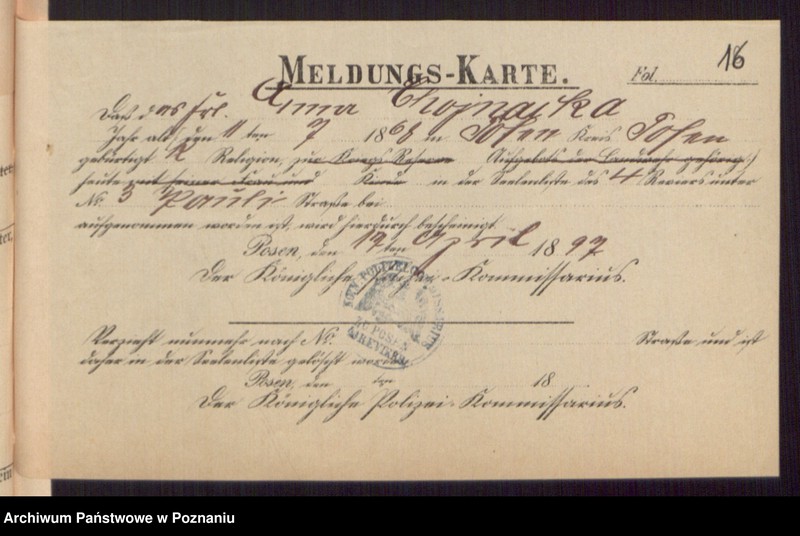 MELDUNGS-KARTE.
Fol. 16
Daß das Frl. Anna Chojnacka
Jahr alt, den 11 ten 7 1868 in Posen Kreis Posen
gebürtigt Religion, zur Kriegs-Reserve Aufgebots der Landwehr gehörig:)
heute mit seiner Frau und Kinde in der Seelenliste des 4 Reviers unter
No. 3 Pauli Straße bei
aufgenommen worden ist, wird hierdurch bescheinigt.
Posen, den 12 ten April 1897
Der Königliche Polizei-Kommissarius.
KÖN. POLIZEI
ZU POSEN
REVIER
Verzieht nunmehr nach No. Straße und ist
daher in der Seelenliste gelöscht worden
Posen, den ten 18
Der Königliche Polizei-Kommissarius.
Archiwum Państwowe w Poznaniu